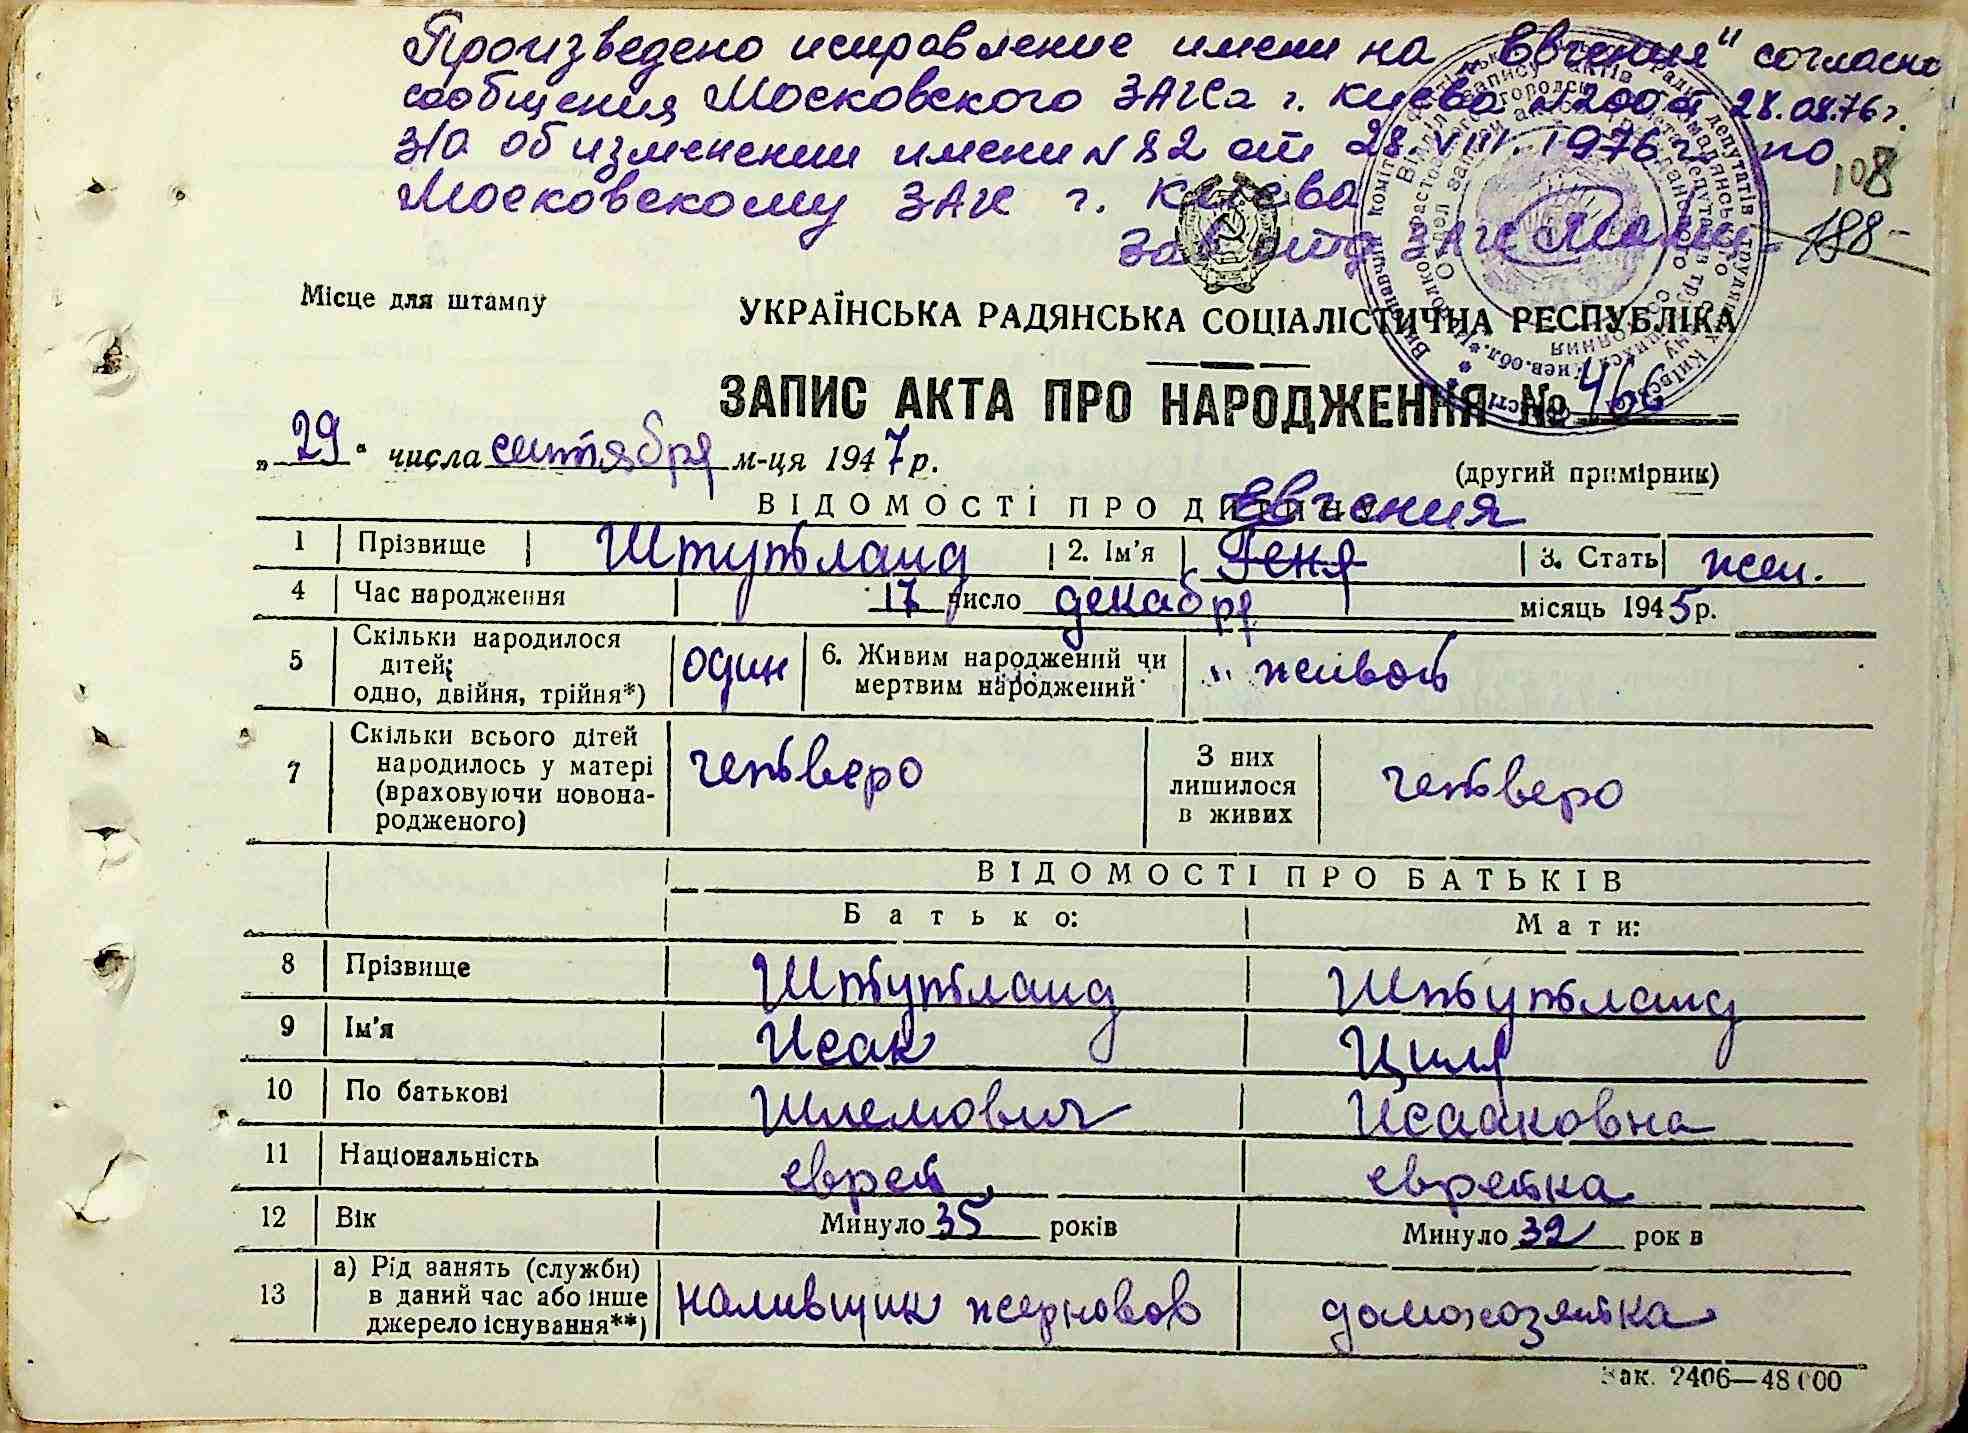 Произведено исправление имени на „Евгения" согласно
сообщения Московского ЗАГСа г. Киева №200 от 28.08.76 г.
З/О об изменении имени №82 от 28.VIII.1976 г. по
Московскому ЗАГС г. Киева
108
Зав отд ЗАГС
188-
Місце для штампу
УКРАЇНСЬКА РАДЯНСЬКА СОЦІАЛІСТИЧНА РЕСПУБЛІКА
ЗАПИС АКТА ПРО НАРОДЖЕННЯ № 466
„29" числа сентября м-ця 1947 р.
(другий примірник)
ВІДОМОСТІ ПРО ДИТИНУ
Евгения
1 Прізвище Штутланд 2. Ім'я Геня 3. Стать жен.
4 Час народження 17 число декабря місяць 1945 р.
5 Скільки народилося дітей; одно, двійня, трійня*) один 6. Живим народжений чи мертвим народжений живой
7 Скільки всього дітей народилось у матері (враховуючи новонародженого) четверо З них лишилося в живих четверо
ВІДОМОСТІ ПРО БАТЬКІВ
Батько: Мати:
8 Прізвище Штутланд Штутланд
9 Ім'я Исак Циля
10 По батькові Шлемович Исааковна
11 Національність еврей еврейка
12 Вік Минуло 35 років Минуло 32 рок в
13 а) Рід занять (служби) в даний час або інше джерело існування**) наливщик жерновов домохозяйка
Зак. 2406—48000